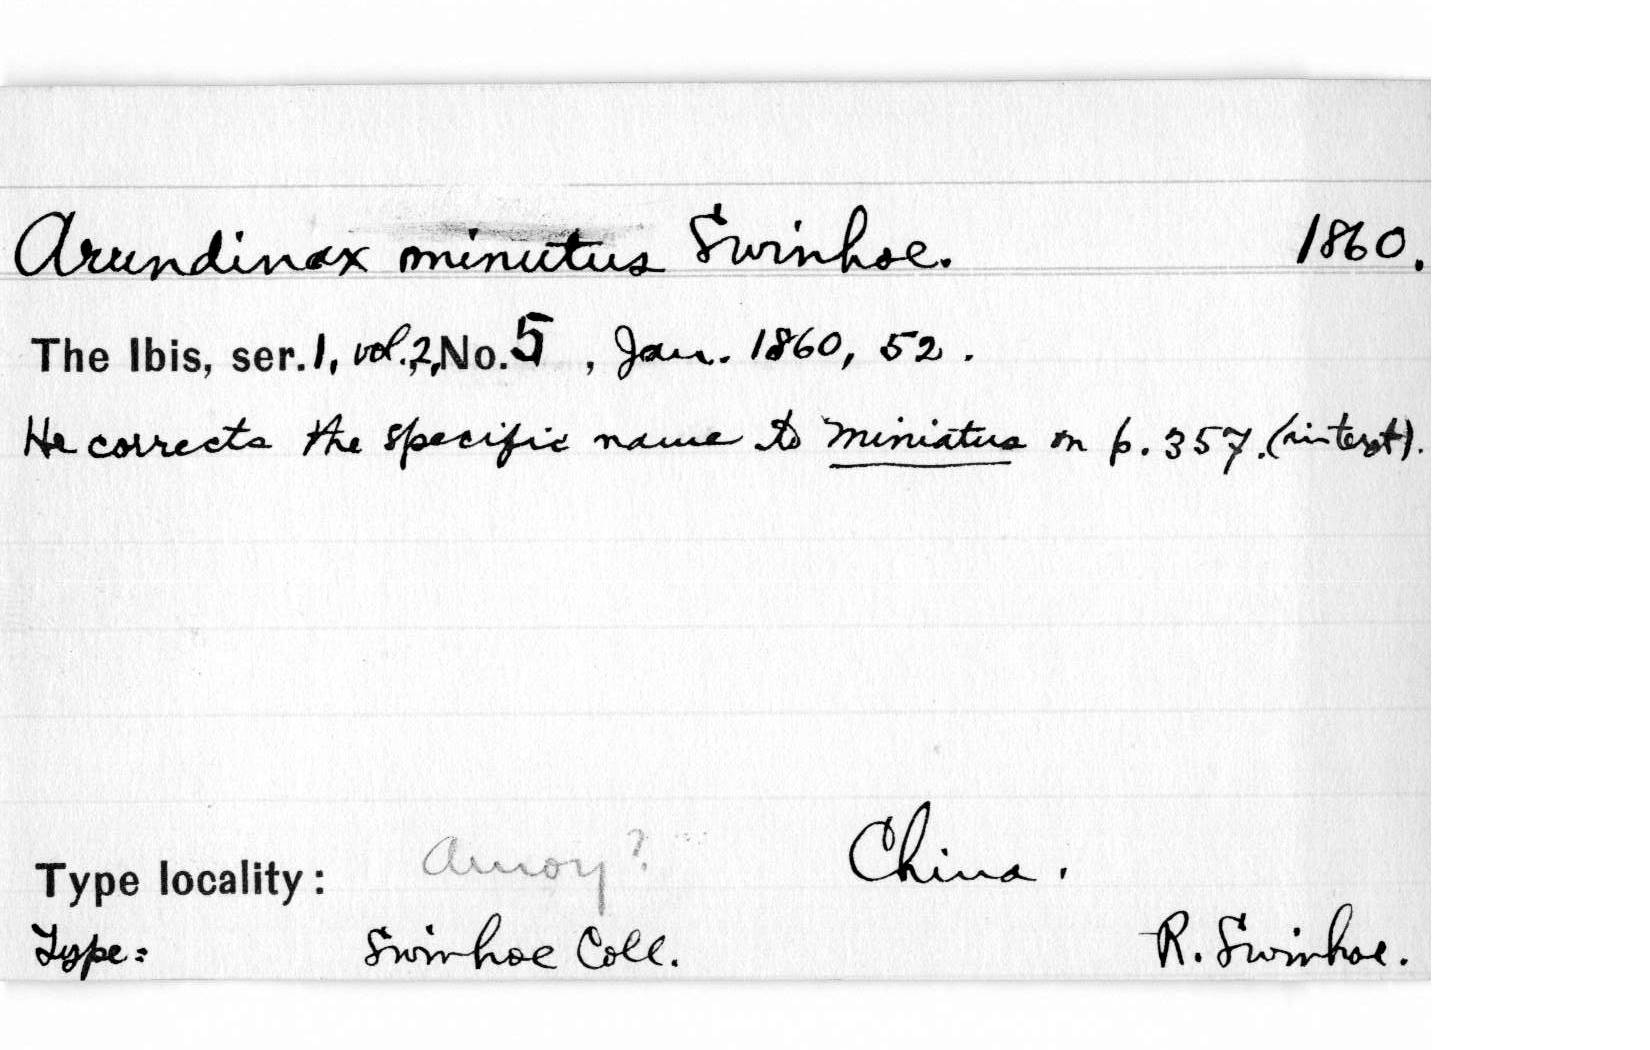 Arundinax minutus Swinhoe. 1860.
The Ibis, ser. 1, vol. 2, No. 5, Jan. 1860, 52.
He corrects the specific name to miniatus on p. 357. (in text).
Type locality: Amoy? China.
Type: Swinhoe Coll. R. Swinhoe.